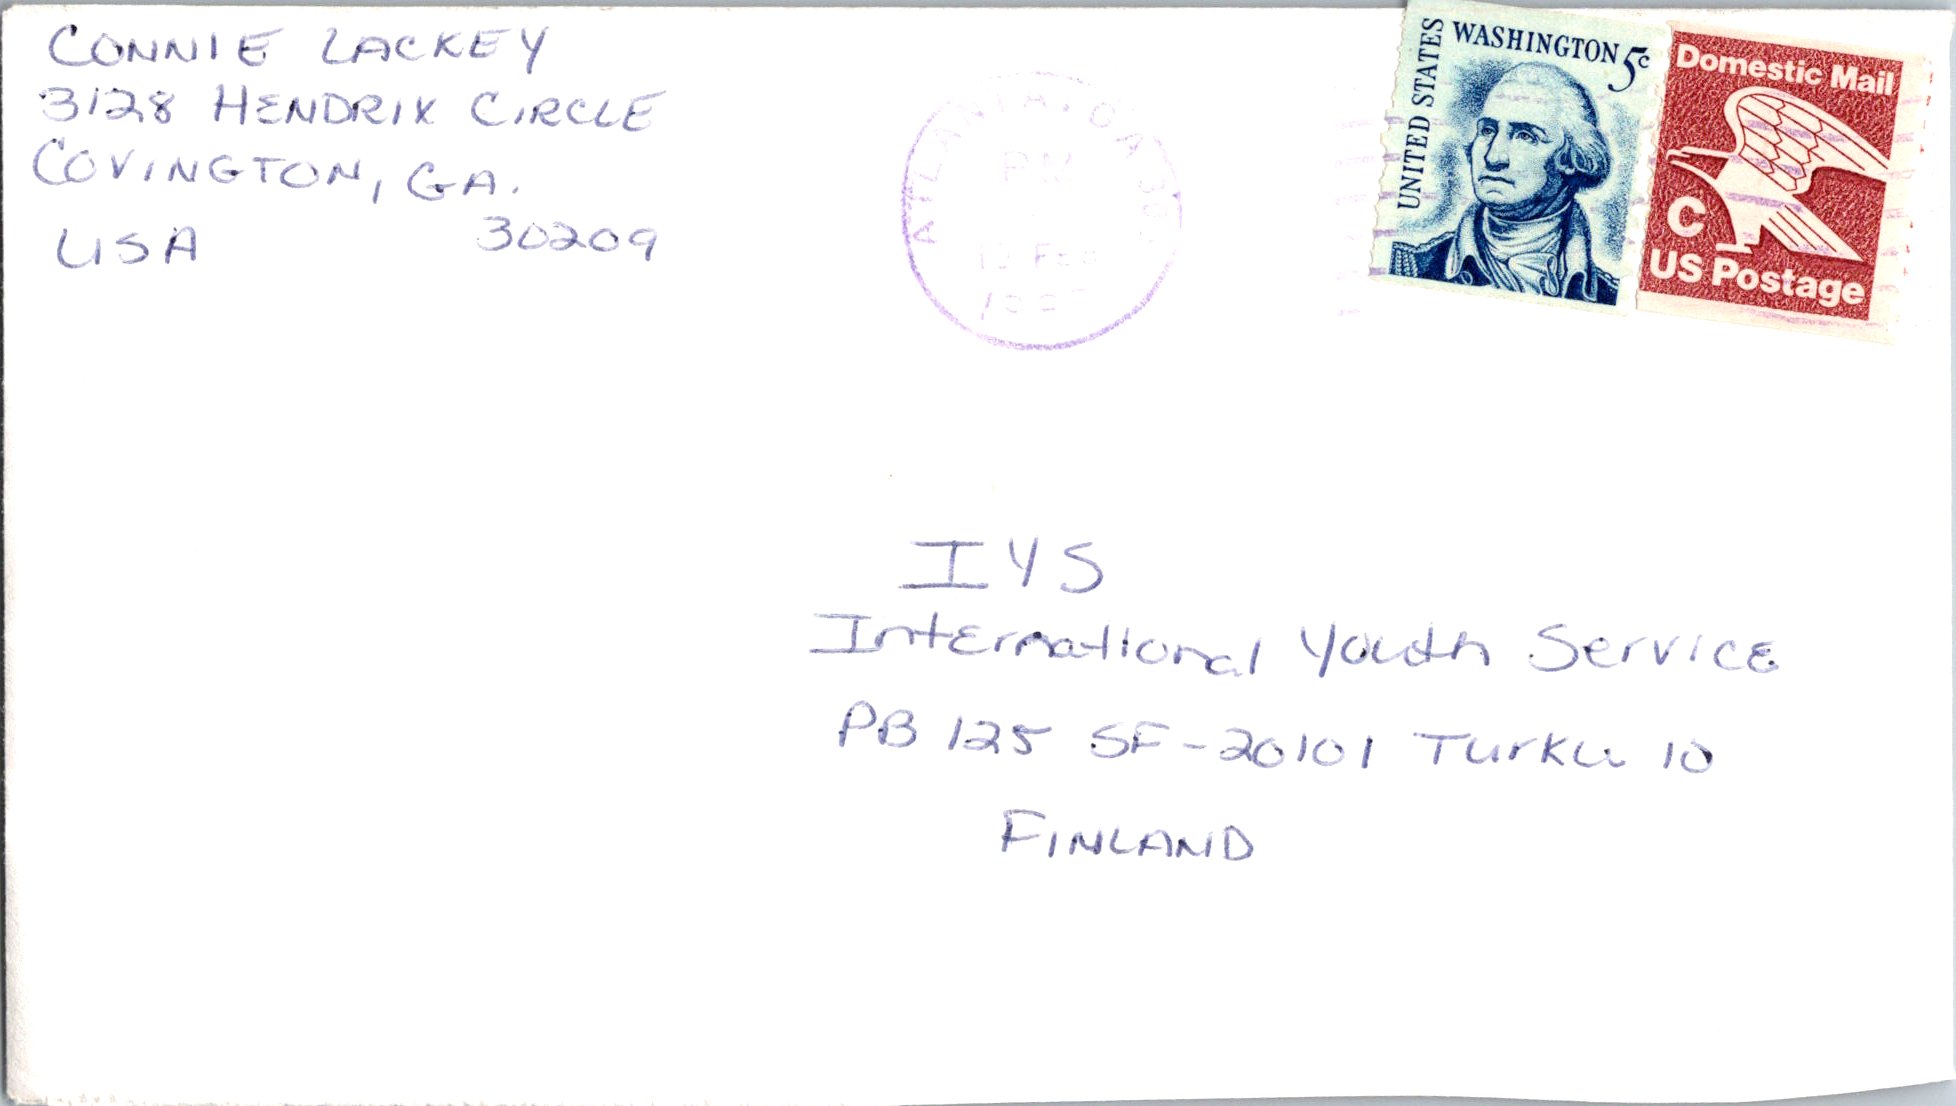 CONNIE LACKEY
3128 HENDRIX CIRCLE
COVINGTON, GA.
USA 30209
ATLANTA, GA
PM
FEB
UNITED STATES
WASHINGTON 5c
Domestic Mail
C
US Postage
IYS
International Youth Service
PB 125 SF-20101 Turku 10
FINLAND